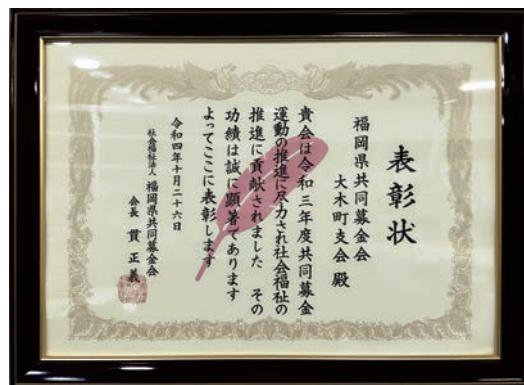 表彰状
福岡県共同募金会
大木町支会 殿
貴会は令和三年度共同募金
運動の推進に尽力され社会福祉の
推進に貢献されました その
功績は誠に顕著であります
よってここに表彰します
令和四年十月二十六日
社会福祉法人 福岡県共同募金会
会長 貫 正義